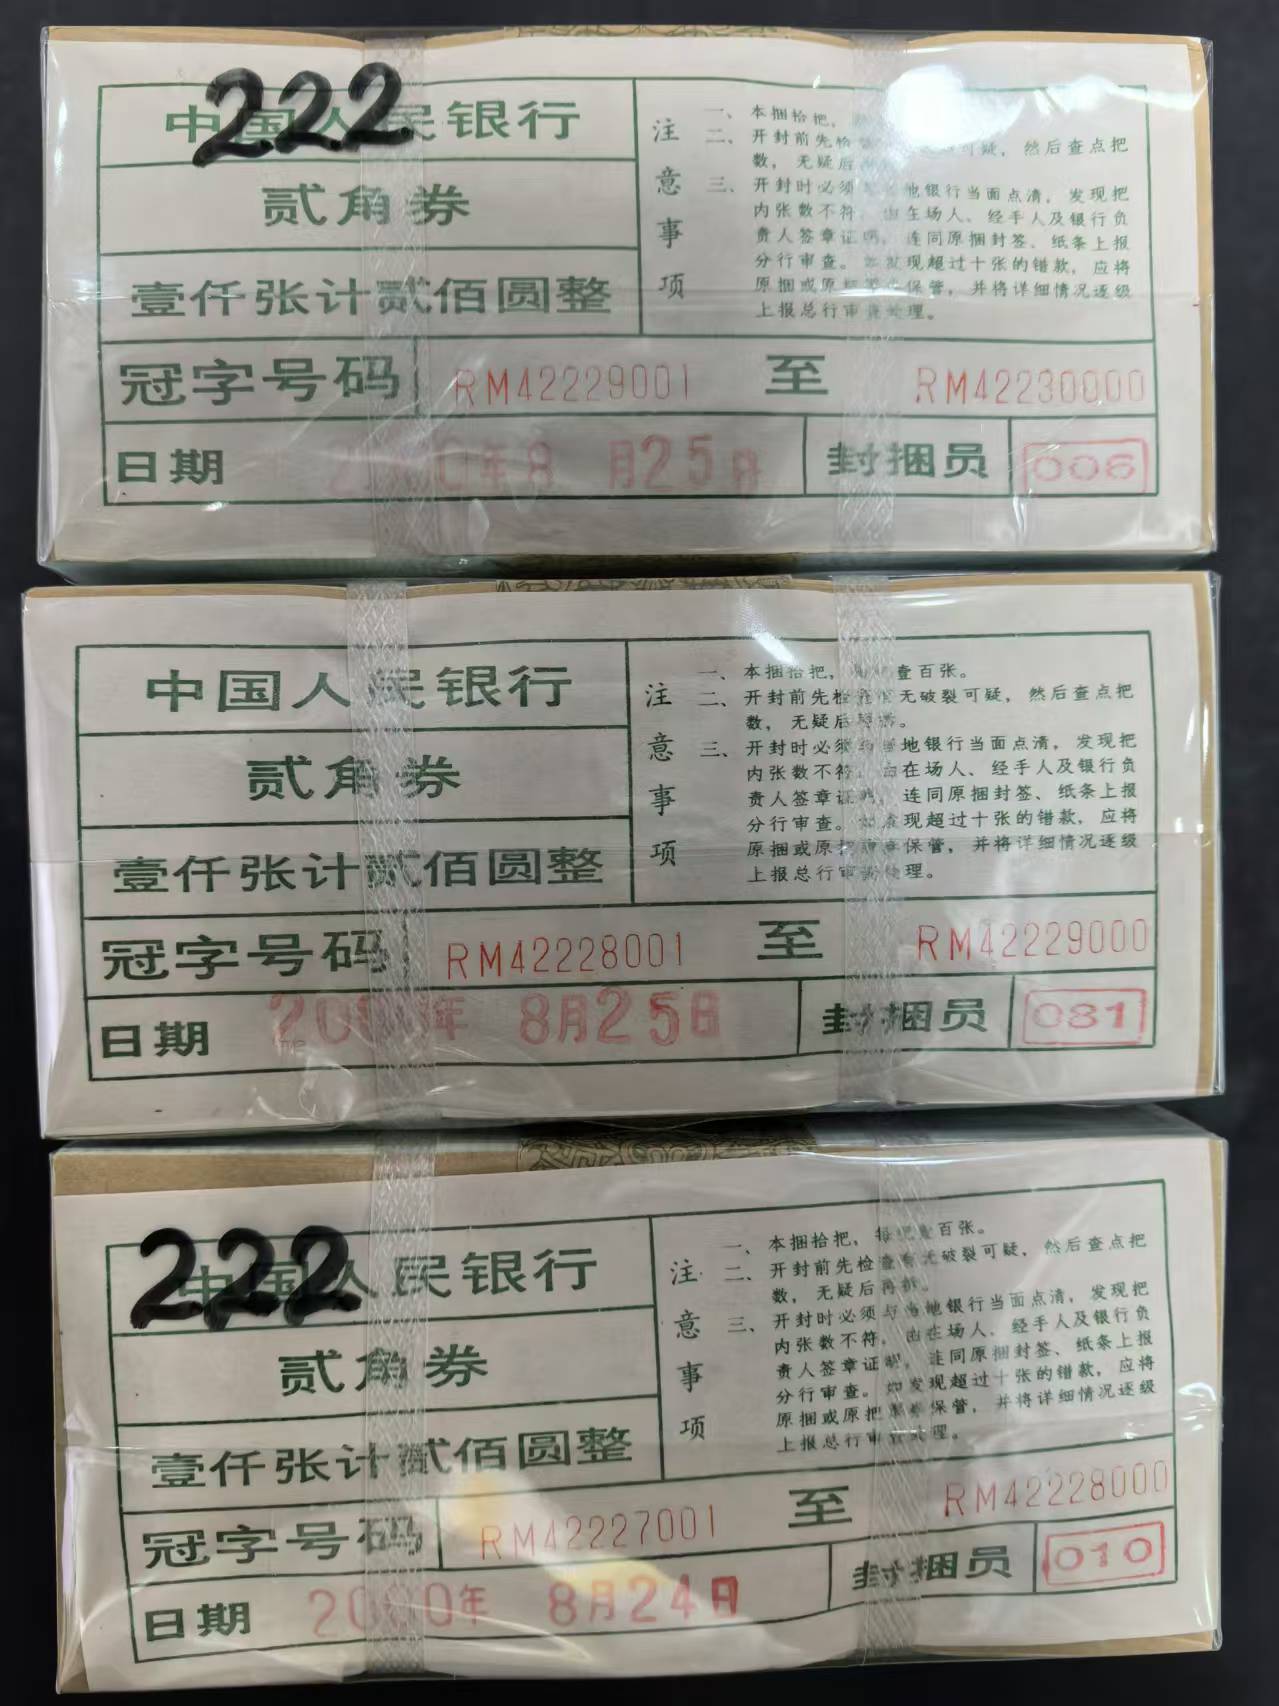 222
中国人民银行
贰角券
壹仟张计贰佰圆整
注意事项
一、本捆拾把，
二、开封前先检 可疑，然后查点把
数，无疑后
三、开封时必须 地银行当面点清，发现把
内张数不符，由在场人、经手人及银行负
责人签章证明，连同原捆封签、纸条上报
分行审查。如发现超过十张的错款，应将
原捆或原 保管，并将详细情况逐级
上报总行审 处理。
冠字号码 RM42229001 至 RM42230000
日期 2000年8月25日 封捆员 006
中国人民银行
贰角券
壹仟张计贰佰圆整
注意事项
一、本捆拾把， 壹百张。
二、开封前先检查有无破裂可疑，然后查点把
数，无疑后再拆。
三、开封时必须与当地银行当面点清，发现把
内张数不符，由在场人、经手人及银行负
责人签章证明，连同原捆封签、纸条上报
分行审查。如发现超过十张的错款，应将
原捆或原 保管，并将详细情况逐级
上报总行审 处理。
冠字号码 RM42228001 至 RM42229000
日期 2000年8月25日 封捆员 081
222
中国人民银行
贰角券
壹仟张计贰佰圆整
注意事项
一、本捆拾把，每把壹百张。
二、开封前先检查有无破裂可疑，然后查点把
数，无疑后再拆。
三、开封时必须与当地银行当面点清，发现把
内张数不符，由在场人、经手人及银行负
责人签章证明，连同原捆封签、纸条上报
分行审查。如发现超过十张的错款，应将
原捆或原把 保管，并将详细情况逐级
上报总行审查处理。
冠字号码 RM42227001 至 RM42228000
日期 2000年8月24日 封捆员 010